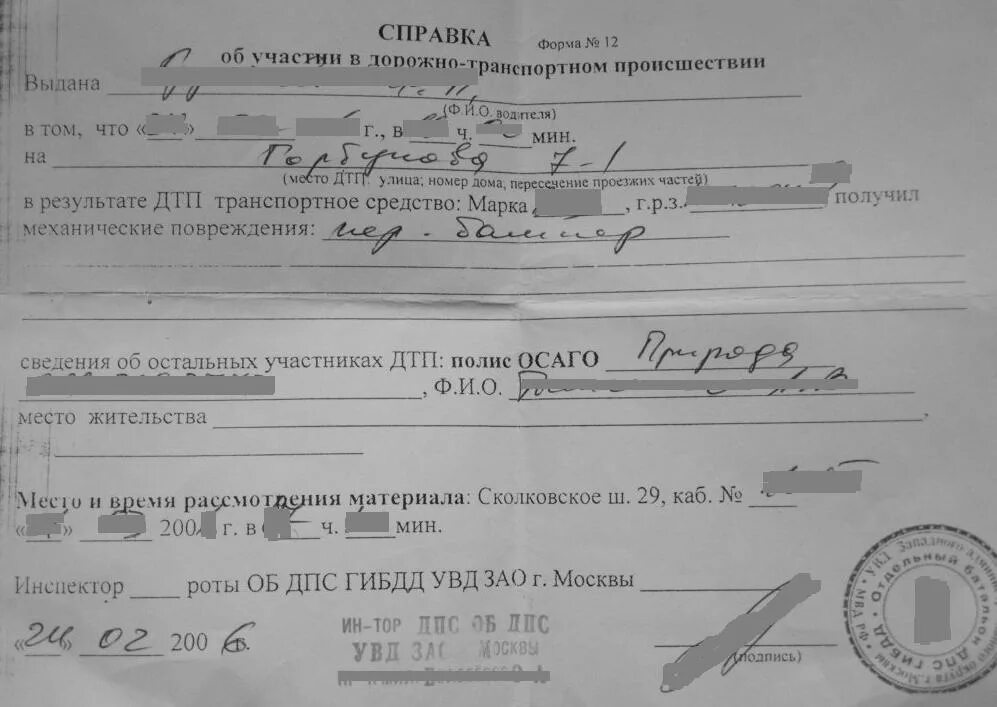 СПРАВКА Форма № 12
об участии в дорожно-транспортном происшествии
Выдана
(Ф.И.О. водителя)
в том, что « » г., в ч. мин.
на Горбунова 7-1
(место ДТП: улица; номер дома, пересечение проезжих частей)
в результате ДТП транспортное средство: Марка , г.р.з. получил
механические повреждения: пер. бампер
сведения об остальных участниках ДТП: полис ОСАГО Природа
, Ф.И.О.
место жительства
Место и время рассмотрения материала: Сколковское ш. 29, каб. №
« » 200 г. в ч. мин.
Инспектор роты ОБ ДПС ГИБДД УВД ЗАО г. Москвы
«24» 02 2006 г.
ИН-ТОР ДПС ОБ ДПС
УВД ЗАО МОСКВЫ
(подпись)
УВД Западного
округа г. Москвы
Отдельный батальон ДПС ГИБДД